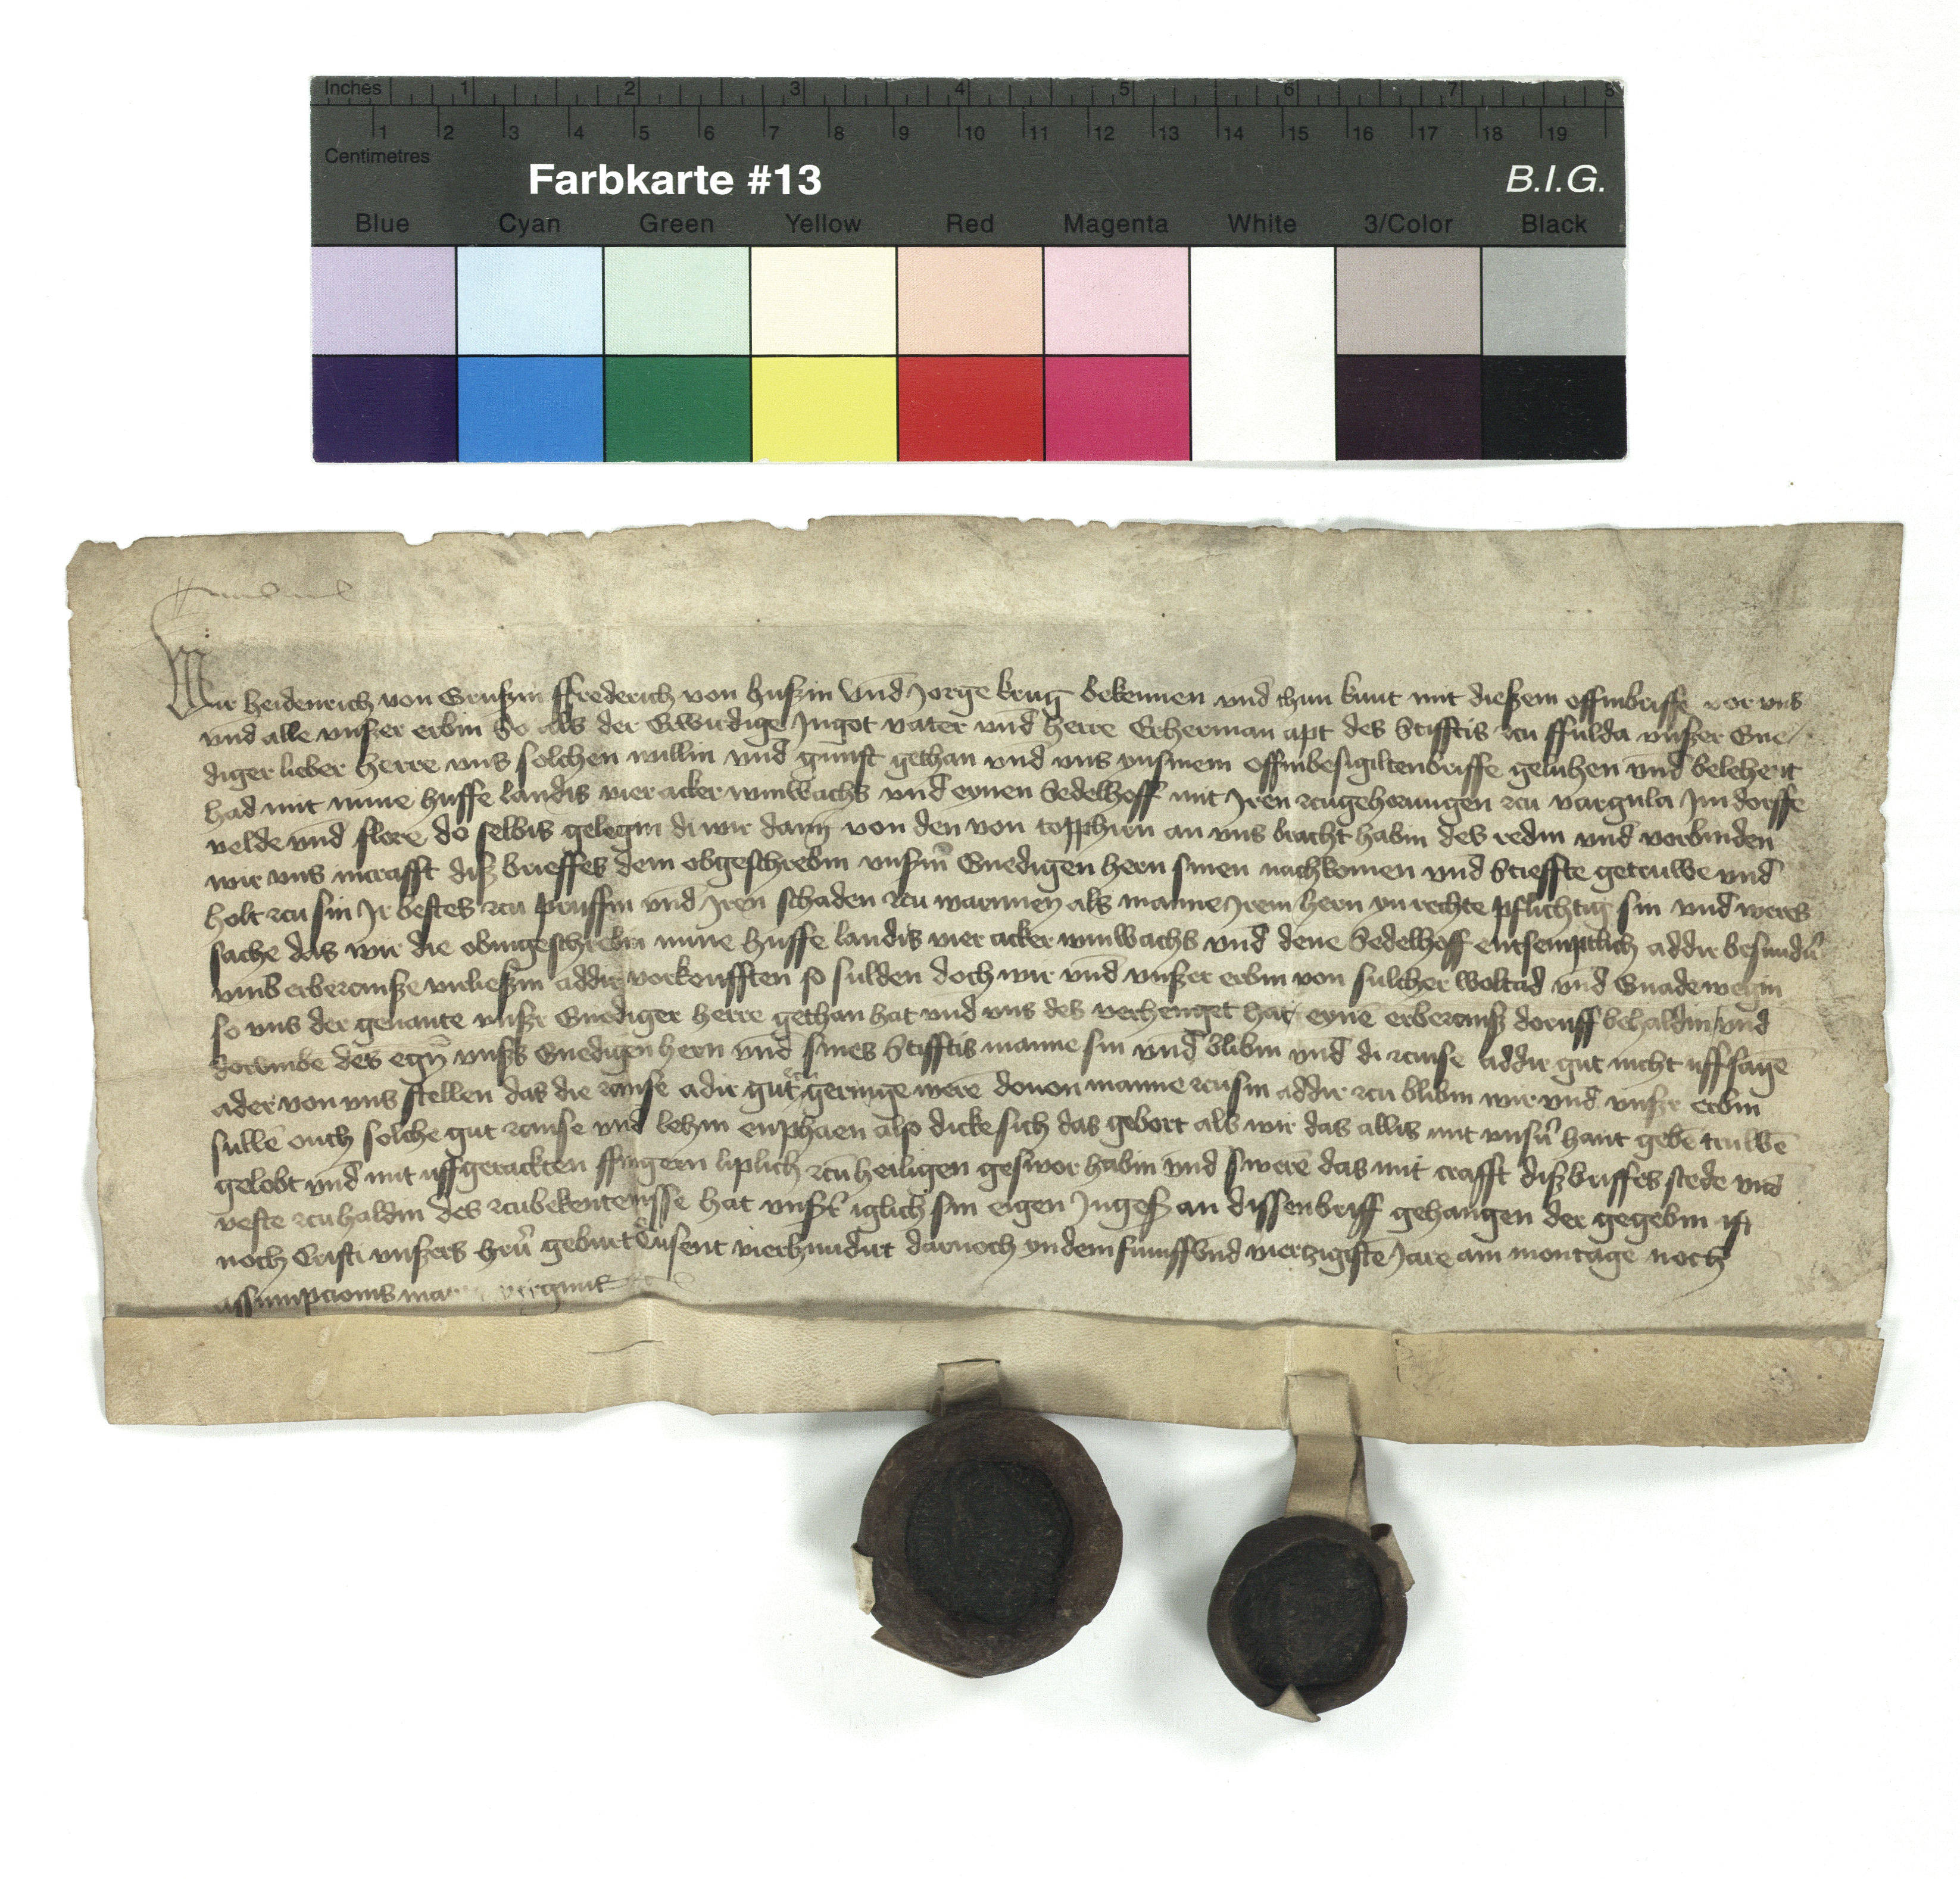 Inches 1 2 3 4 5 6 7 8
1 2 3 4 5 6 7 8 9 10 11 12 13 14 15 16 17 18 19
Centimetres
Farbkarte #13 B.I.G.
Blue Cyan Green Yellow Red Magenta White 3/Color Black
Wir heidenrich von Grußin ffrederich von hußin vnd Jorge krug bekennen vnd thun kunt mit dießem offinbriffe vor vns
vnd alle vnßer erbin So als der Erwirdige Jngot vater vnd herre Er herman apt des Stifftis zcu ffulda vnßer Gne
diger lieber herre vns solchen willin vnd gunst gethan vnd vns ynsinem offinbesigiltenbriffe geluhen vnd belehent
had mit nune huffe landis vier acker winwachs vnd eynen Sedelhoff mit Jren zcugehorungen zcu vargula Jm dorffe
velde vnd flore do selbis gelegin di wir dann von den von topphirn an vns bracht habin des redin vnd vorbinden
wir vns incrafft diß brieffes dem obgeschrebin vnßin Gnedigen hern sinen nachkomen vnd Stieffte getruwe vnd
holt zcu sin Jr bestes zcu pruffin vnd Jren schaden zcu warnnen als manne Jrem hern yn rechte pflichtig sin vnd weres
sache das wir die obingeschrebin nune huffe landis vier acker winwachs vnd dene Sedelhoff entsemptlich addir besundn
vmb erbezcinße vorließin addir vorkoufften so sulden doch wir vnd vnßer erbin von sulcher woltad vnd Gnade wegin
so vns der genante vnßr Gnediger herre gethan hat vnd vns des verhenget hat eyne erbezcinß doruff behaldin vnd
dorvmbe des egn vnßs Gnedigen hern vnd sines Stifftis manne sin vnd blibin vnd di zcinse addir gut nicht uff sage
ader von vns stellen das die zcinse adir gut zcu geringe were douon manne zcu sin addir zcu blibin wir vnd vnßr erbin
sulle ouch solche gut zcinse vnd lehin enphaen also dicke sich das gebort als wir das allis mit vnsn hant gebe truwe
gelobt vnd mit uffgerackten ffingern liplich zcu heiligen geswor habin vnd swere das mit crafft dißbriffes stede vnd
veste zcu haldin des zcubekentenisse hat vnßr iglich sin eigen Jngeß an dissenbriff gehangen der gegebin ist
noch Cristi vnßers hrn geburt dusent vierhundirt darnoch yndem funffvnd vierzigiste Jare am montage noch
assumpcionis virginis